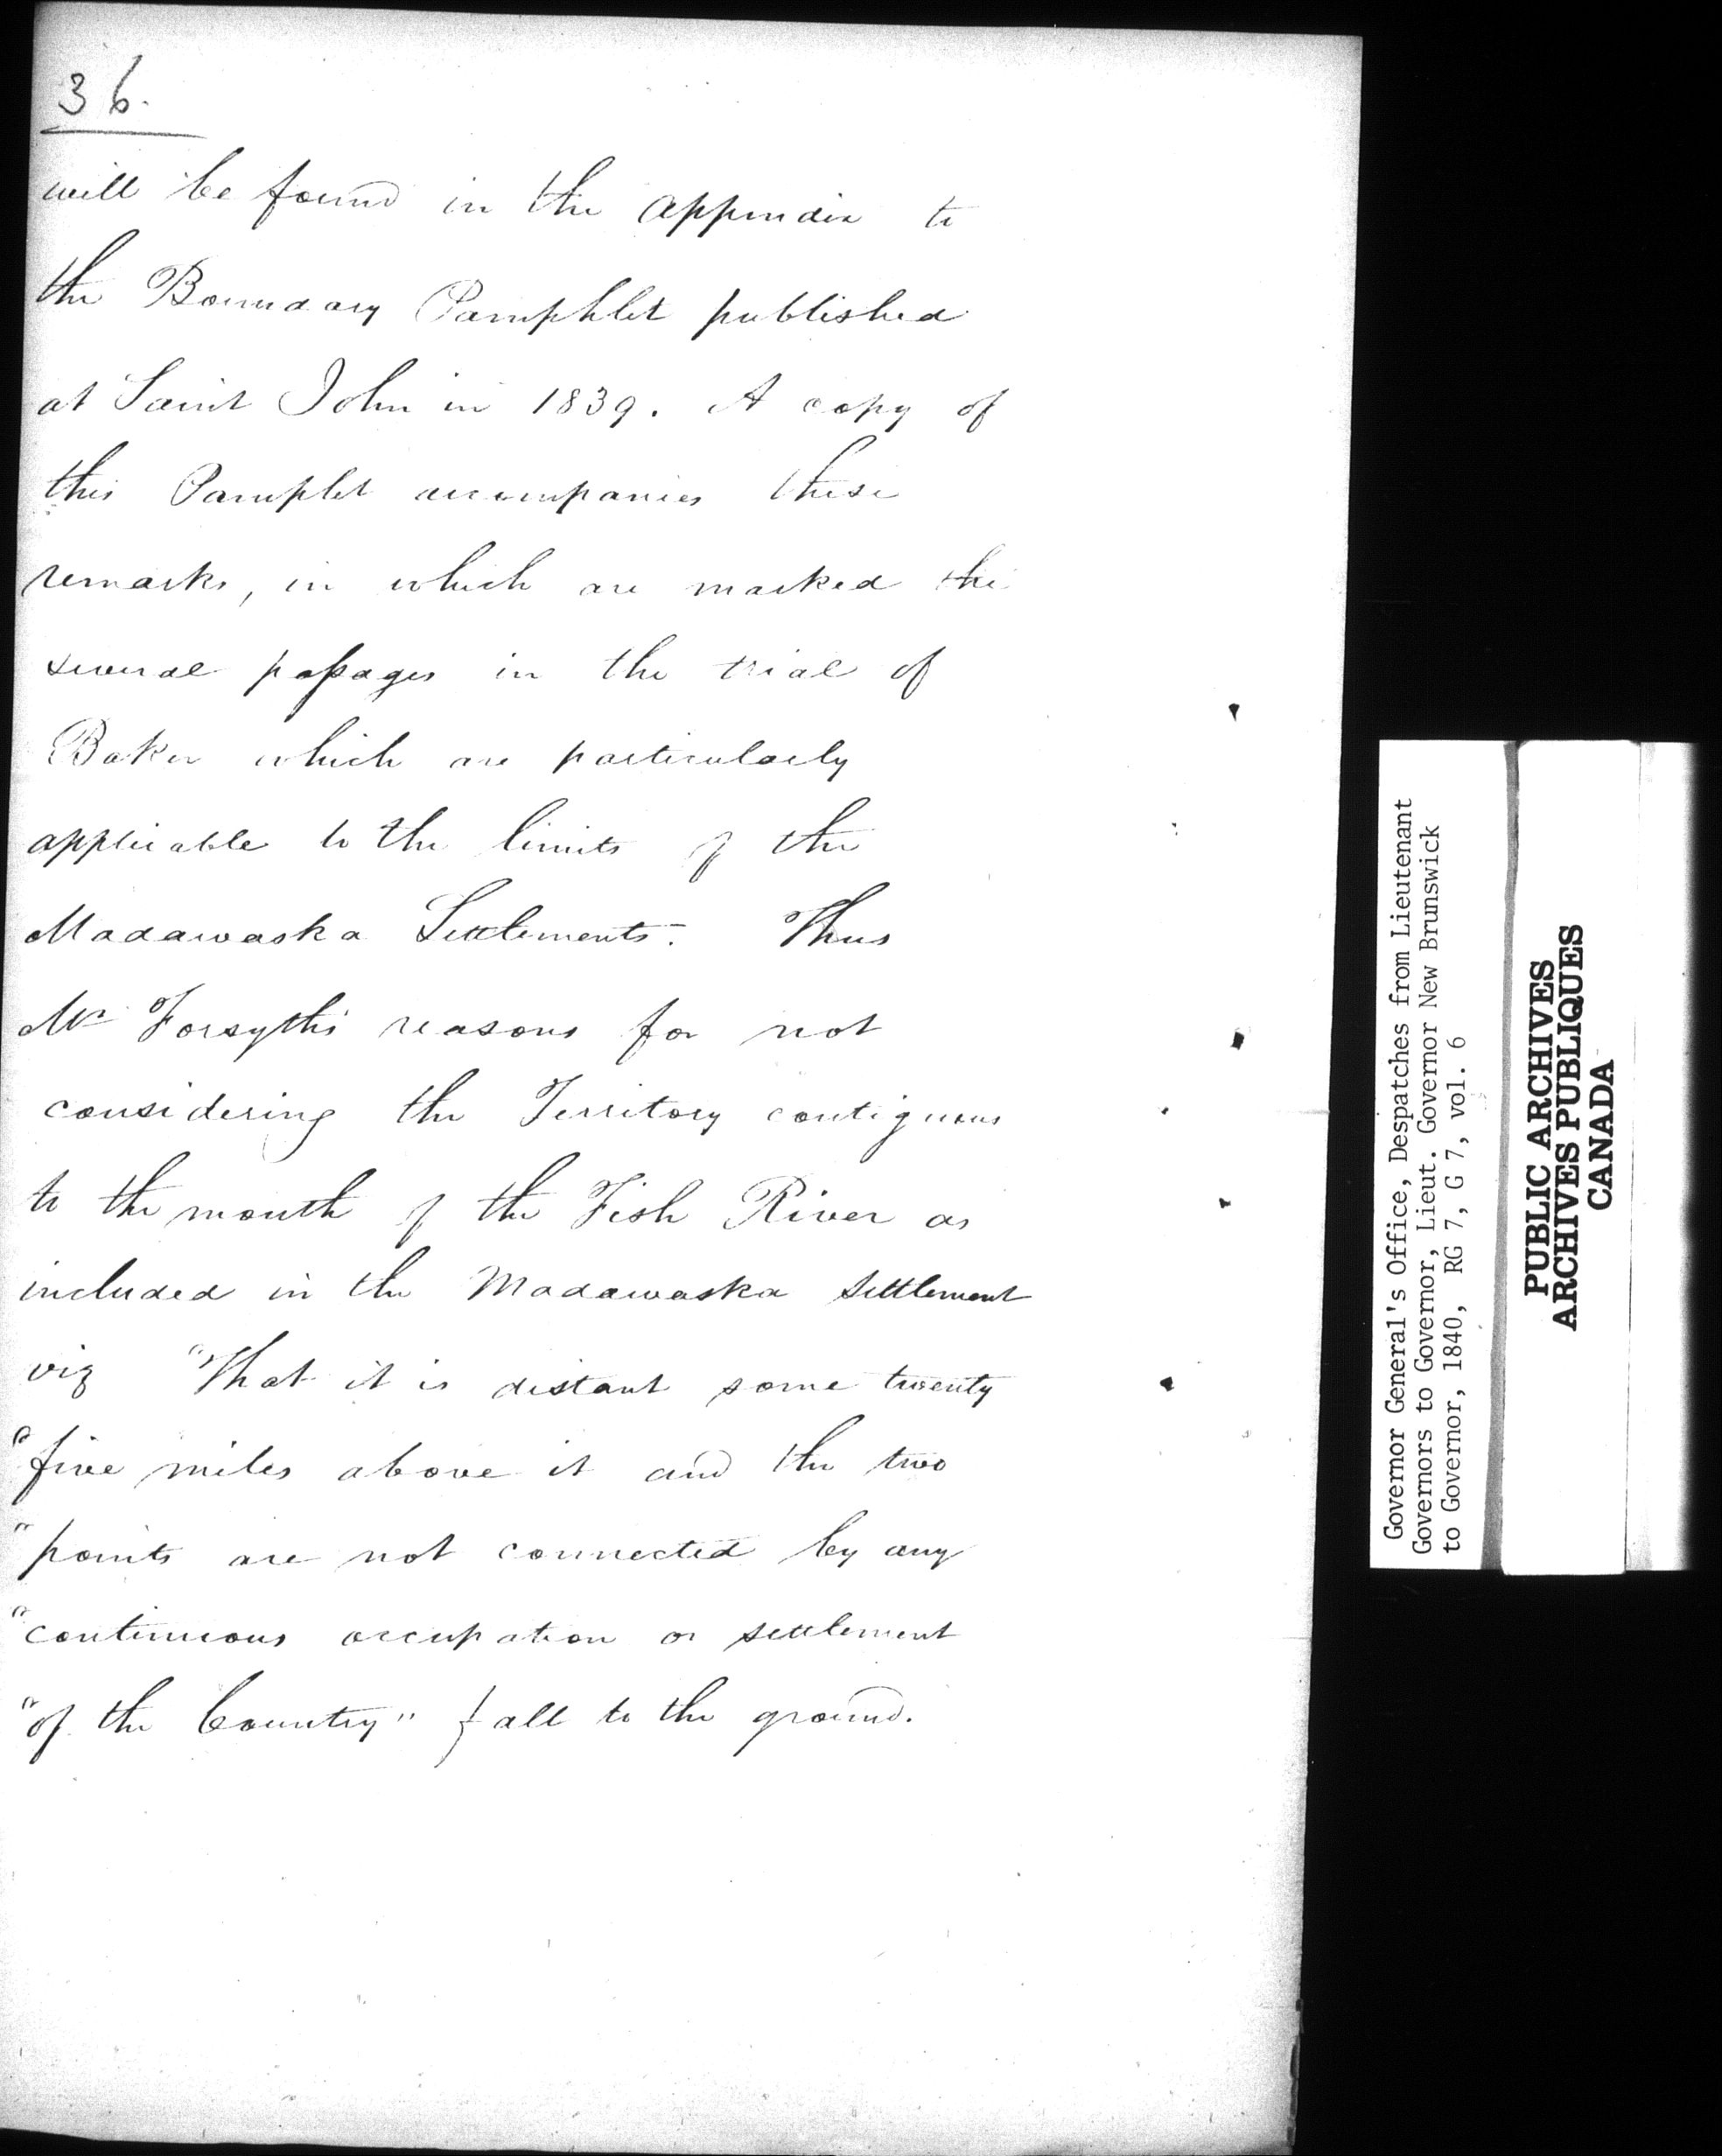 36.
will be found in the appendix to
the Boundary Pamphlet published
at Saint John in 1839. A copy of
this Pamplet accompanies these
remarks, in which are marked the
several passages in the trial of
Baker which are particularly
applicable to the limits of the
Madawaska Settlements. Thus
Mr Forsyth's reasons for not
considering the Territory contiguous
to the mouth of the Fish River as
included in the Madawaska Settlement
viz "That it is distant some twenty
"five miles above it and the two
"points are not connected by any
"continuous occupation or settlement
"of the Country" fall to the ground.
Governor General's Office, Despatches from Lieutenant
Governors to Governor, Lieut. Governor New Brunswick
to Governor, 1840, RG 7, G 7, vol. 6
PUBLIC ARCHIVES
ARCHIVES PUBLIQUES
CANADA